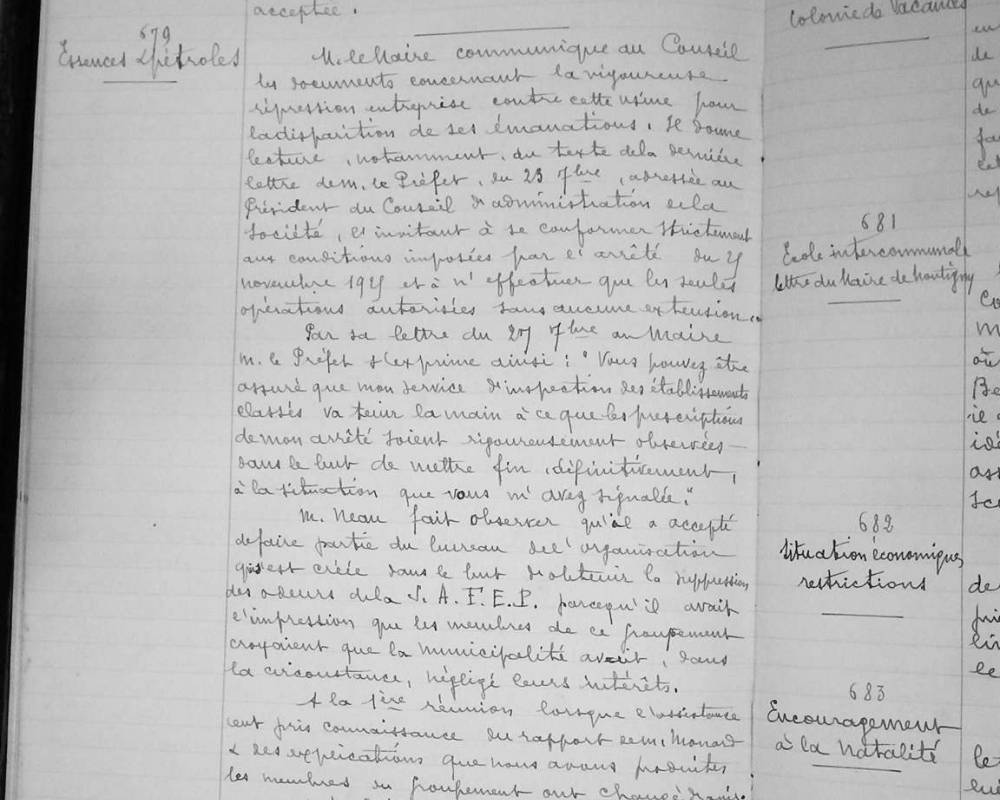 acceptée.
679
Essences & pétroles
M. le Maire communique au Conseil
les documents concernant la vigoureuse
répression entreprise contre cette usine pour
la disparition de ses émanations. Il donne
lecture, notamment, du texte de la dernière
lettre de M. le Préfet, du 23 7bre, adressée au
Président du Conseil d'administration de la
Société, l'invitant à se conformer strictement
aux conditions imposées par l'arrêté du 25
novembre 1925 et à n'effectuer que les seules
opérations autorisées sans aucune extension.
Par sa lettre du 27 7bre au Maire
M. le Préfet s'exprime ainsi : "Vous pouvez être
assuré que mon service d'inspection des établissements
classés va tenir la main à ce que les prescriptions
de mon arrêté soient rigoureusement observées
dans le but de mettre fin, définitivement,
à la situation que vous m'avez signalée."
M. Neau fait observer qu'il a accepté
de faire partie du bureau de l'organisation
qui s'est créée dans le but d'obtenir la suppression
des odeurs de la S.A.F.E.P. parcequ'il avait
l'impression que les membres de ce groupement
croyaient que la municipalité avait, dans
la circonstance, négligé leurs intérêts.
A la 1ère réunion lorsque l'assistance
eut pris connaissance du rapport de M. Monard
& des explications que nous avons produites
les membres du groupement ont changé d'avis
Colonie de Vacances
681
Ecole intercommunale
lettre du Maire de Montigny
682
Situation économique,
restrictions
683
Encouragement
à la natalité